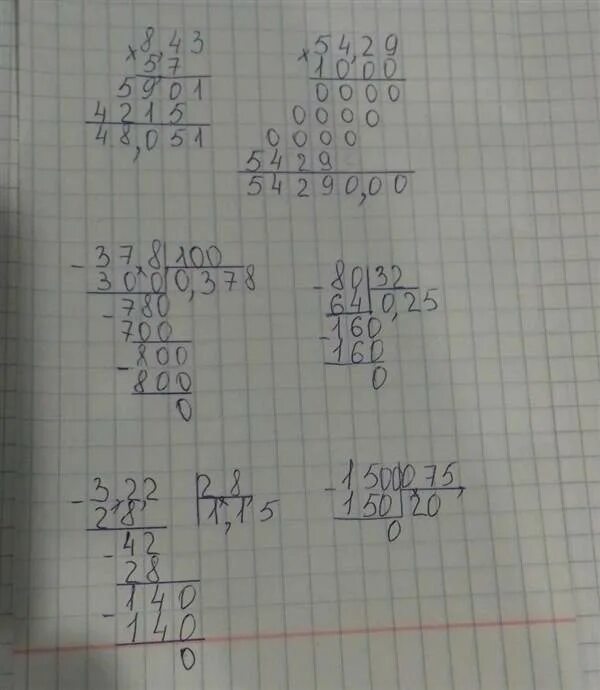 8,43
× 5,7
5901
4215
48,051
54,29
× 1000
0000
0000
0000
5429
54290,00
- 37,8 | 100
300 | 0,378
- 780
700
- 800
800
0
- 80 | 32
64 | 0,25
- 160
160
0
- 3,2,2 | 2,8,
28 | 1,15
- 42
28
- 140
140
0
- 1500 | 0,75,
150 | 20
0